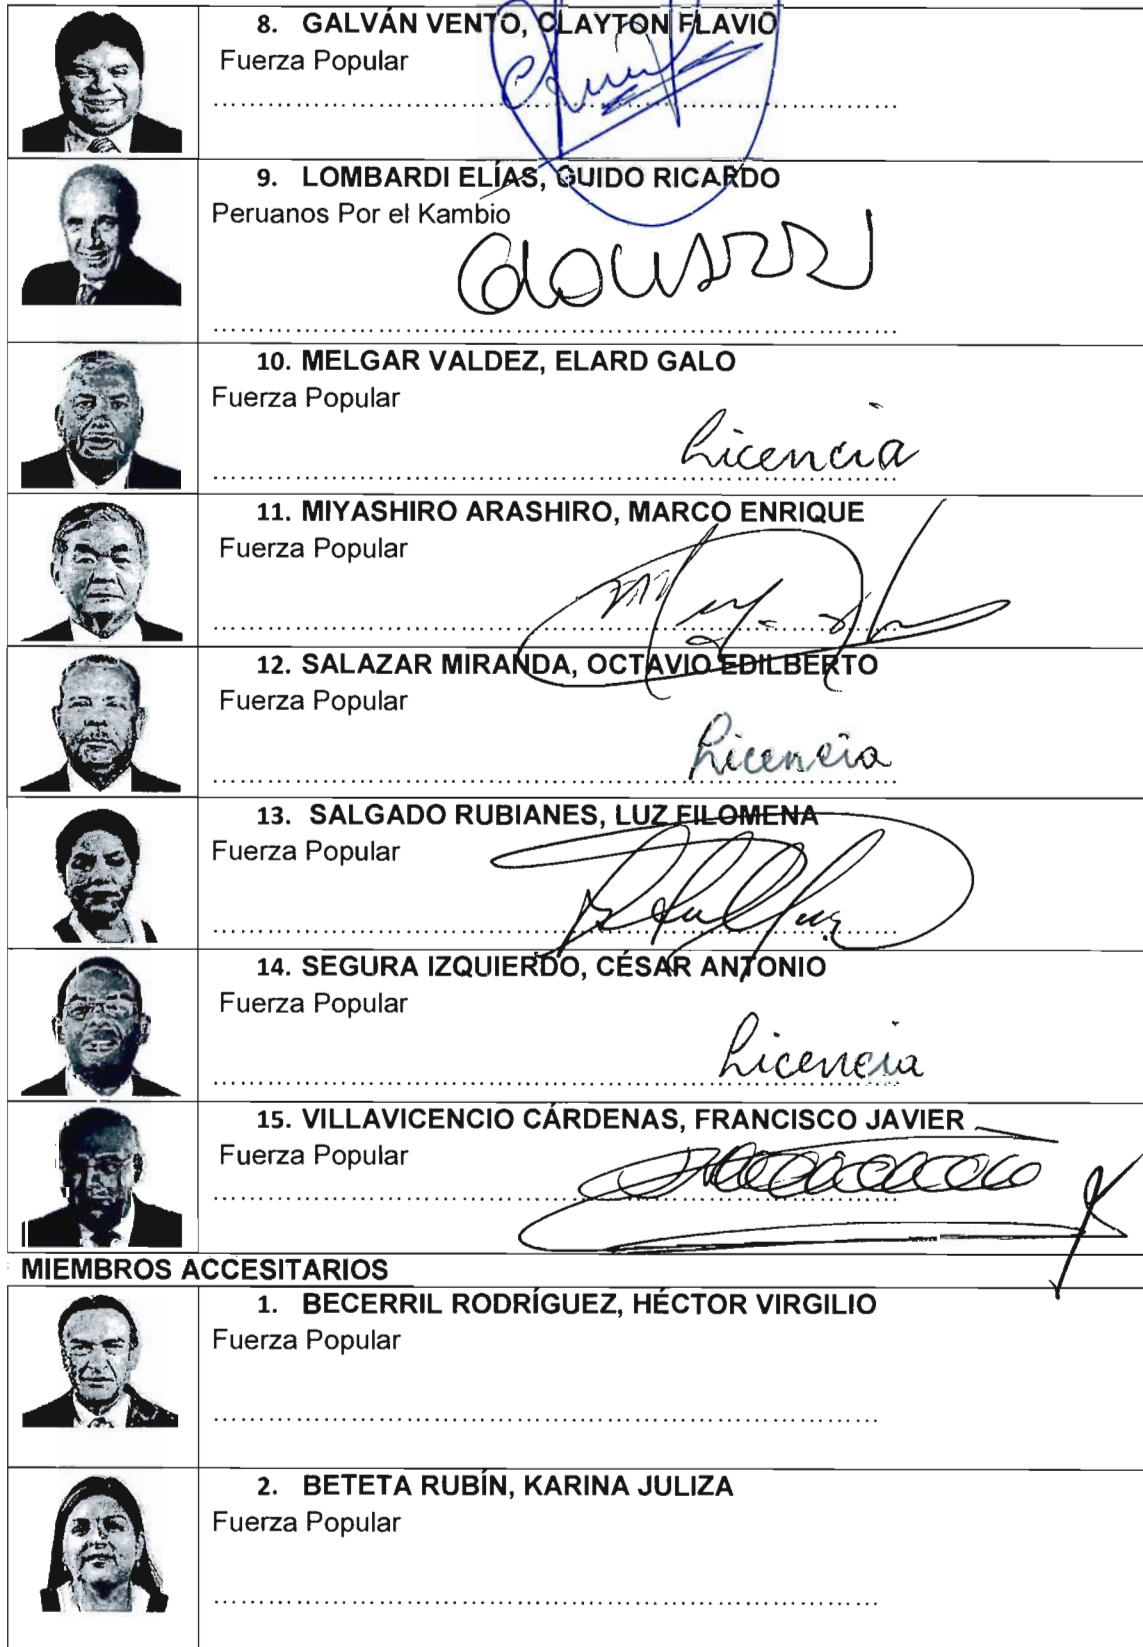 8. GALVÁN VENTO, CLAYTON FLAVIO
Fuerza Popular
9. LOMBARDI ELÍAS, GUIDO RICARDO
Peruanos Por el Kambio
10. MELGAR VALDEZ, ELARD GALO
Fuerza Popular
Licencia
11. MIYASHIRO ARASHIRO, MARCO ENRIQUE
Fuerza Popular
12. SALAZAR MIRANDA, OCTAVIO EDILBERTO
Fuerza Popular
Licencia
13. SALGADO RUBIANES, LUZ FILOMENA
Fuerza Popular
14. SEGURA IZQUIERDO, CÉSAR ANTONIO
Fuerza Popular
Licencia
15. VILLAVICENCIO CÁRDENAS, FRANCISCO JAVIER
Fuerza Popular
MIEMBROS ACCESITARIOS
1. BECERRIL RODRÍGUEZ, HÉCTOR VIRGILIO
Fuerza Popular
2. BETETA RUBÍN, KARINA JULIZA
Fuerza Popular